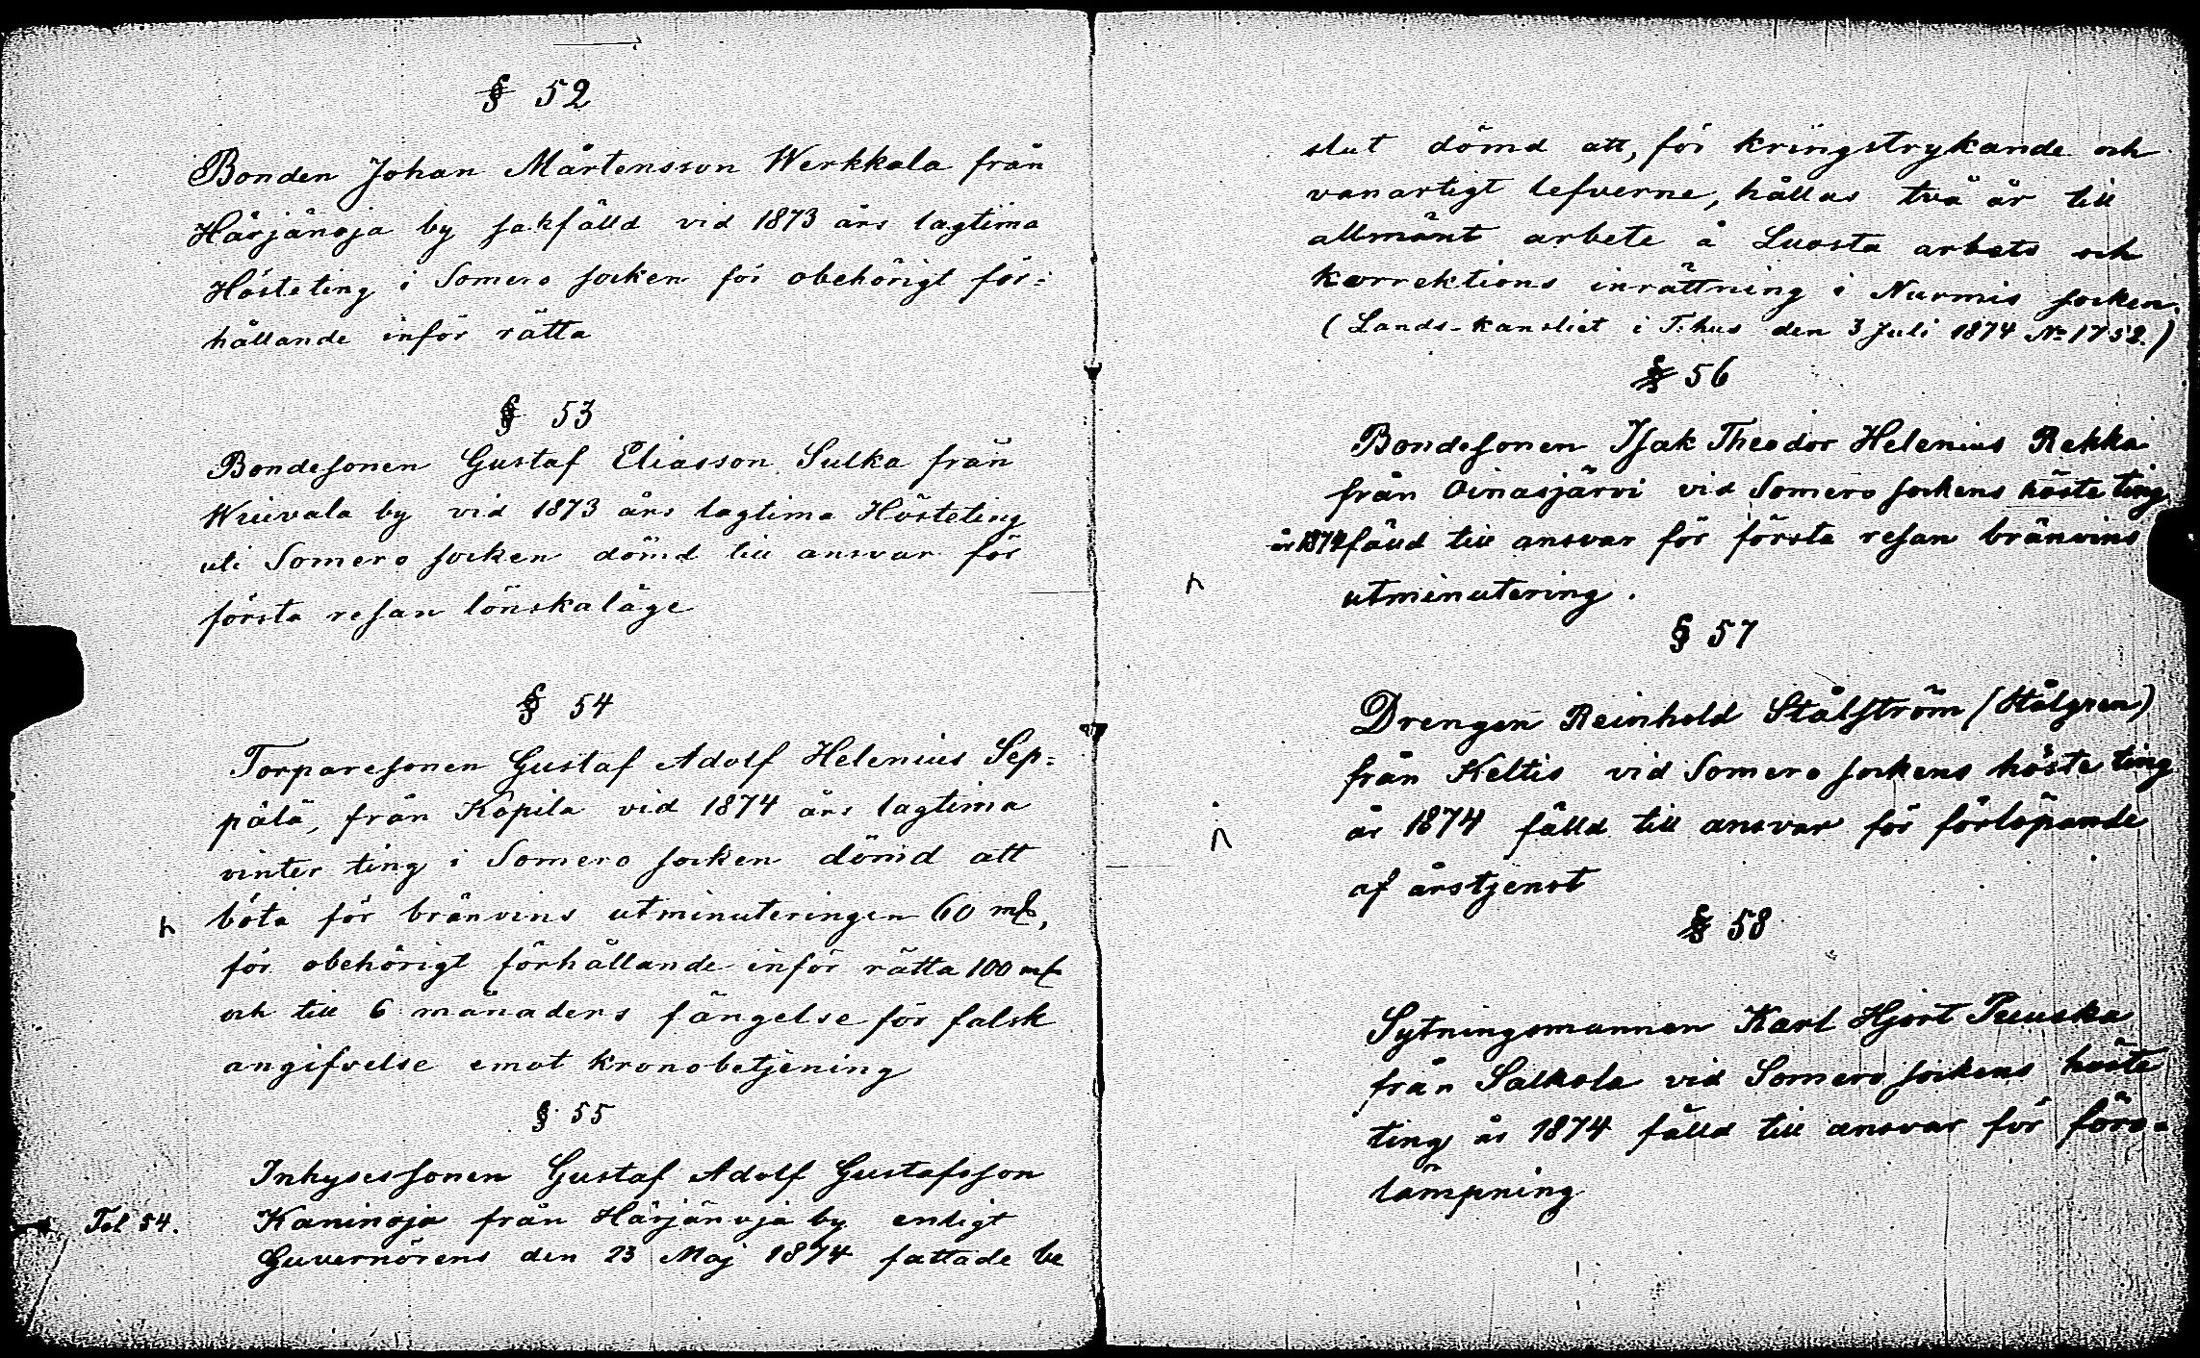 § 52
Bonden Johan Mårtensson Werkkala från
Härjänoja by sakfälld vid 1873 års lagtima
Hösteting i Somero socken för obehörigt för=
hållande inför rätta
§ 53
Bondesonen Gustaf Eliasson Sulka från
Wiuvala by vid 1873 års lagtima Hösteting
uti Somero socken dömd till ansvar för
första resan lönskaläge
§ 54
Torparesonen Gustaf Adolf Helenius Sep=
pälä, från Kopila vid 1874 års lagtima
vinter ting i Somero socken dömd att
böta för bränvins utminuteringen 60 mk,
för obehörigt förhållande inför rätta 100 mk
och till 6 månaders fängelse för falsk
angifvelse emot kronobetjening
§ 55
Inhysessonen Gustaf Adolf Gustafsson
Fol 54. Kaninoja från Härjänoja by enligt
Guvernörens den 23 Maj 1874 fattade be
slut dömd att, för kringstrykande och
vanartigt lefverne, hållas två år till
allmänt arbete å Luosta arbets och
korrektions inrättning i Nurmis socken.
(Lands-kansliet i T:hus den 3 Juli 1874 No 1752.)
§ 56
Bondesonen Isak Theodor Helenius Rekka
från Oinasjärvi vid Somero sockens höste ting
år 1874 fälld till ansvar för första resan bränvins
utminutering.
§ 57
Drengen Reinhold Stålström (Stålgren)
från Keltis vid Somero sockens höste ting
år 1874 fälld till ansvar för förlöpande
af årstjenst
§ 58
Sytningsmannen Karl Hjort Puuska
från Salkola vid Somero sockens höste
ting år 1874 fälld till ansvar för föro=
lämpning